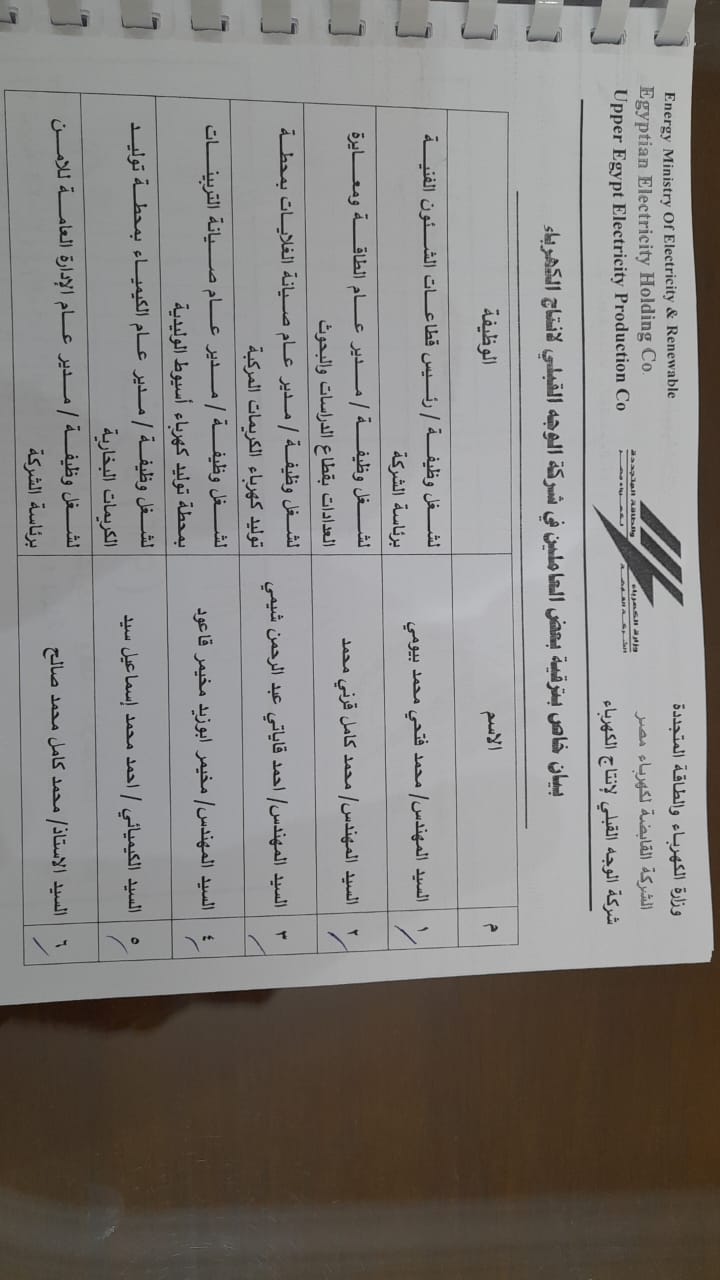 وزارة الكهرباء والطاقة المتجددة
الشركة القابضة لكهرباء مصر
شركة الوجه القبلي لإنتاج الكهرباء
Energy Ministry Of Electricity & Renewable
Egyptian Electricity Holding Co
Upper Egypt Electricity Production Co
بيان خاص بترقية بعض العاملين في شركة الوجه القبلي لانتاج الكهرباء
م الاسم الوظيفة
١ السيد المهندس/ محمد فتحي محمد بيومي لشغل وظيفة / رئيس قطاعات الشئون الفنية
برئاسة الشركة
٢ السيد المهندس/ محمد كامل قرني محمد لشغل وظيفة / مدير عام الطاقة ومعايرة
العدادات بقطاع الدراسات والبحوث
٣ السيد المهندس/ احمد قاياتي عبد الرحمن شيمي لشغل وظيفة / مدير عام صيانة الغلايات بمحطة
توليد كهرباء الكريمات المركبة
٤ السيد المهندس/ مخيمر ابوزيد مخيمر قاعود لشغل وظيفة / مدير عام صيانة التربينات
بمحطة توليد كهرباء أسيوط الوليدية
٥ السيد الكيميائي / احمد محمد إسماعيل سيد لشغل وظيفة / مدير عام الكيمياء بمحطة توليد
الكريمات البخارية
٦ السيد الاستاذ/ محمد كامل محمد صالح لشغل وظيفة / مدير عام الإدارة العامة للامن
برئاسة الشركة